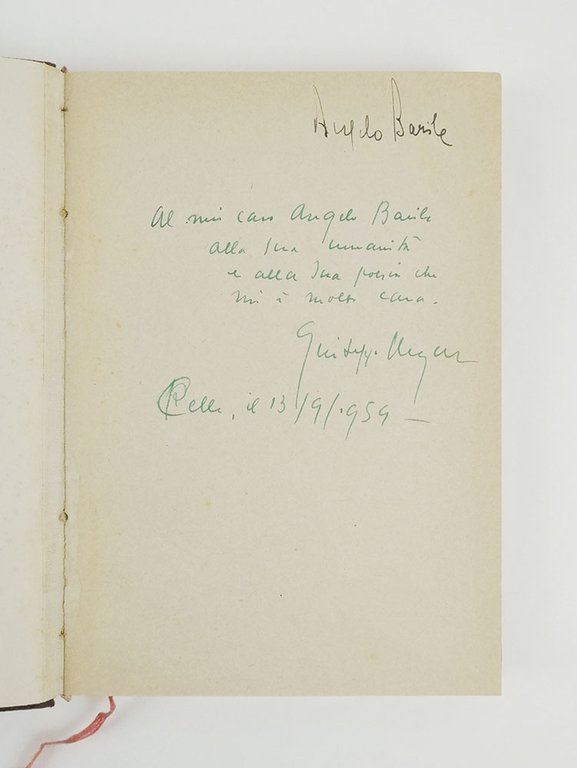 Angelo Barile
Al mio caro Angelo Barile
alla sua umanità
e alla sua poesia che
mi è molto cara.
Giuseppe
il 13/9/1959 —